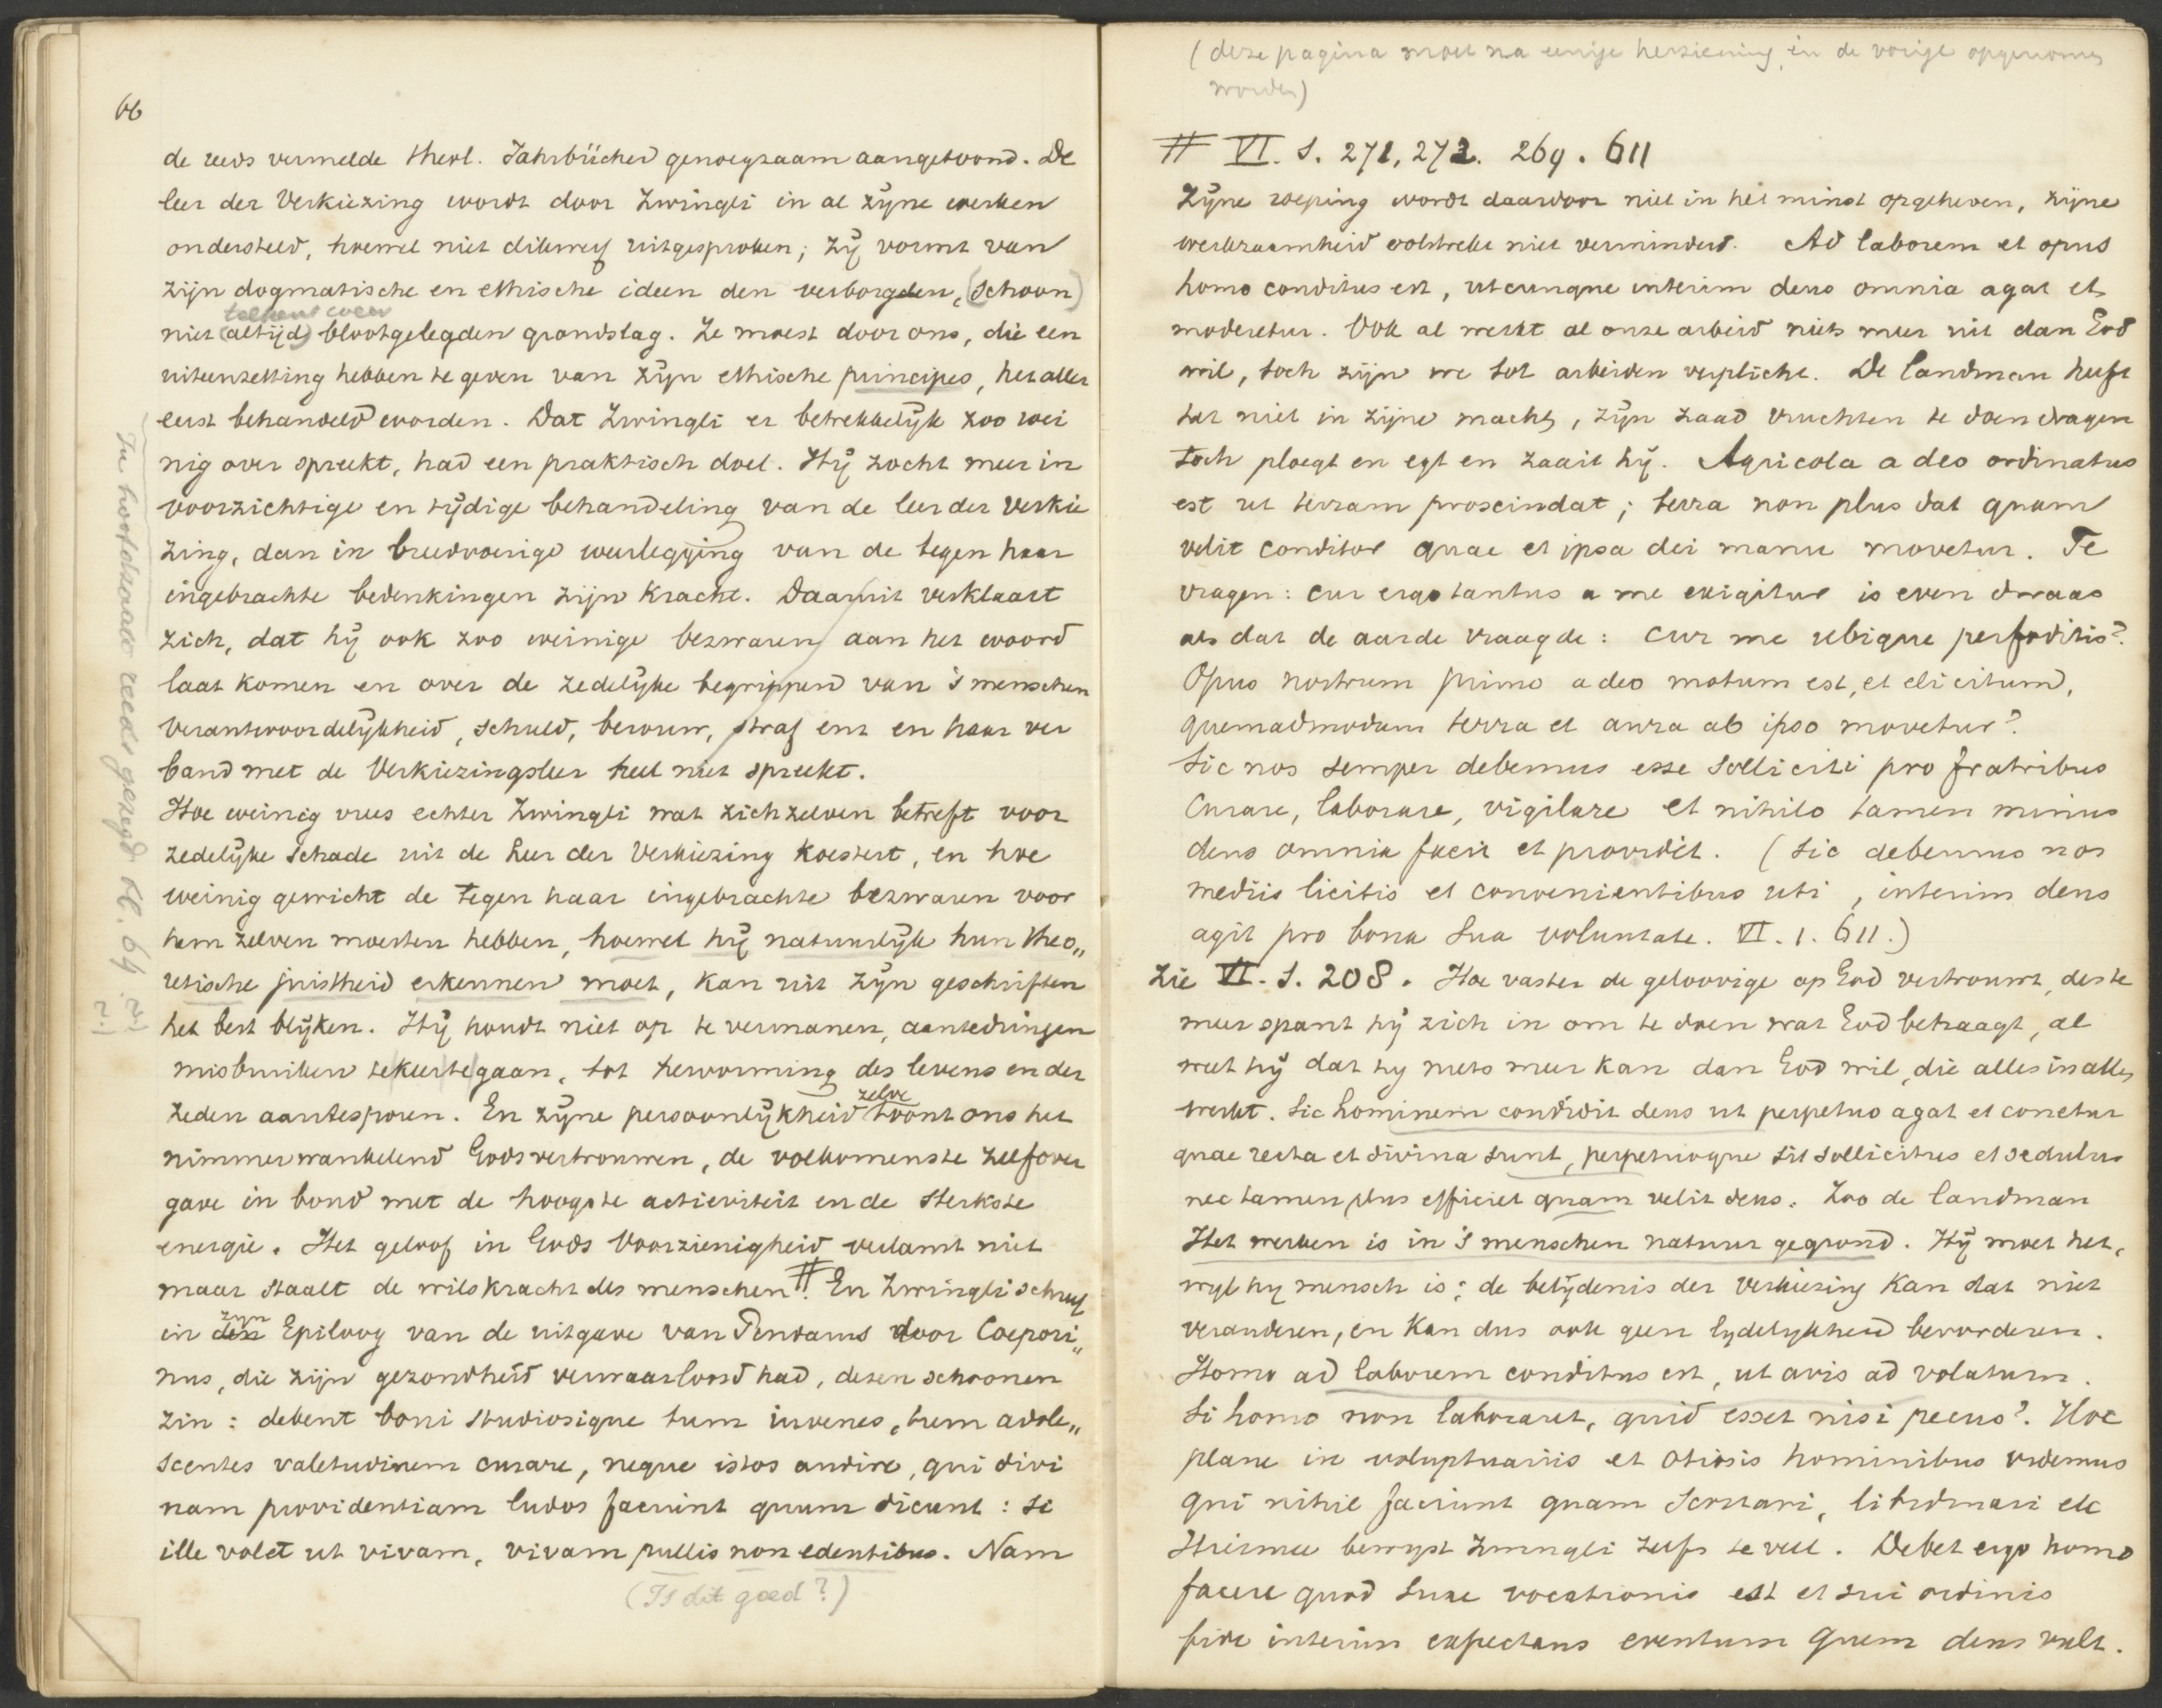 66
de reeds vermelde theol. Jahrbücher genoegzaam aangetoond. De
leer der Verkiezing wordt door Zwingli in al zyne werken
ondersteld, hoewel niet dikwerf uitgesproken; zy vormt van
zijn dogmatische en ethische ideen den verborgen, (schoon)
telkens weer
niet (altijd) blootgelegden grondslag. Ze moest door ons, die een
uiteenzetting hebben te geven van zyn ethische principes, het aller
eerst behandeld worden. Dat Zwingli er betrekkelyk zoo wei
nig over spreekt, had een praktisch doel. Hy zocht meer in
voorzichtige en tydige behandeling van de leer der Verkie
zing, dan in breedvoerige weerlegging van de tegen haar
ingebrachte bedenkingen zijn kracht. Daaruit verklaart
zich, dat hy ook zoo weinige bezwaren aan het woord
laat komen en over de zedelyke begrippen van 's menschen
verantwoordelykheid, schuld, berouw, straf enz en haar ver
band met de Verkiezingsleer heel niet spreekt.
Hoe weinig vrees echter Zwingli wat zichzelven betreft voor
zedelyke schade uit de leer der Verkiezing koestert, en hoe
weinig gewicht de tegen haar ingebrachte bezwaren voor
hem zelven moesten hebben, hoewel hy natuurlyk hun theo„
retische juistheid erkennen moet, kan uit zyn geschriften
het best blyken. Hy houdt niet op te vermanen, aantedringen
misbruiken tekeertegaan, tot hervorming des levens en der
zelve
zeden aantesporen. En zyne persoonlykheid toont ons het
nimmer wankelend Godsvertrouwen, de volkomenste zelfover
gave in bond met de hoogste activiteit en de sterkste
energie. Het geloof in Gods Voorzienigheid verlamt niet
maar staalt de wilskracht des menschen #. En Zwingli schreef
zyn
in den Epiloog van de uitgave van Pindarus door Ceepori„
nus, die zijn gezondheid verwaarloosd had, dezen schoonen
zin: debent boni studiosique tum iuvenes, tum adole„
scentes valetudinem curare, neque istos audire, qui divi
nam providentiam ludos faciunt quum dicunt: si
ille volet ut vivam, vivam pullis non edentibus. Nam
(Is dit goed?)
In hoofdzaak reeds gezegd bl. 64
(deze pagina moet na eenige herziening in de vorige opgenomen
worden)
# VI. S. 271, 272. 269. 611
Zyne roeping wordt daardoor niet in het minst opgeheven, zijne
werkzaamheid volstrekt niet verminderd. Ad laborem et opus
homo conditus est, utcunque interim deus omnia agat et
moderetur. Ook al werkt al onze arbeid niets meer uit dan God
wil, toch zijn we tot arbeiden verplicht. De landman heeft
het niet in zijne macht, zyn zaad vruchten te doen dragen
toch ploegt en egt en zaait hy. Agricola a deo ordinatus
est ut terram proscindat; terra non plus dat quam
velit conditor quae et ipsa dei manu movetur. Te
vragen: cur ergo tantus a me exigitur is even dwaas
als dat de aarde vraagde: cur me ubique perfoditis?
Opus nostrum primo a deo motum est, et elicitum,
quemadmodum terra et aura ab ipso movetur?
Sic nos semper debemus esse solliciti pro fratribus
curare, laborare, vigilare et nihilo tamen minus
deus omnia facit et providet. (Sic debemus nos
mediis licitis et convenientibus uti, interim deus
agit pro bona sua voluntate. VI. 1. 611.)
zie VI. S. 208. Hoe vaster de geloovige op God vertrouwt, des te
meer spant hy zich in om te doen wat God behaagt, al
weet hy dat hy niets meer kan dan God wil, die alles in alles
werkt. Sic hominem condidit deus ut perpetuo agat et conetur
quae recta et divina sunt, perpetuoque sit sollicitus et sedulus
nec tamen plus efficiet quam velit deus. Zoo de landman
Het werken is in 's menschen natuur gegrond. Hy moet het,
wyl hy mensch is; de belydenis der Verkiezing kan dat niet
veranderen, en kan dus ook geen lydelykheid bevorderen.
Homo ad laborem conditus est, ut avis ad volatum.
Si homo non laboraret, quid esset nisi pecus? Hoc
plane in voluptuariis et otiosis hominibus videmus
qui nihil faciunt quam scortari, libidinari etc
Hiermee bewyst Zwingli zelfs te veel. Debet ergo homo
facere quod suae vocationis est et sui ordinis
fide interim expectans eventum quem deus vult.